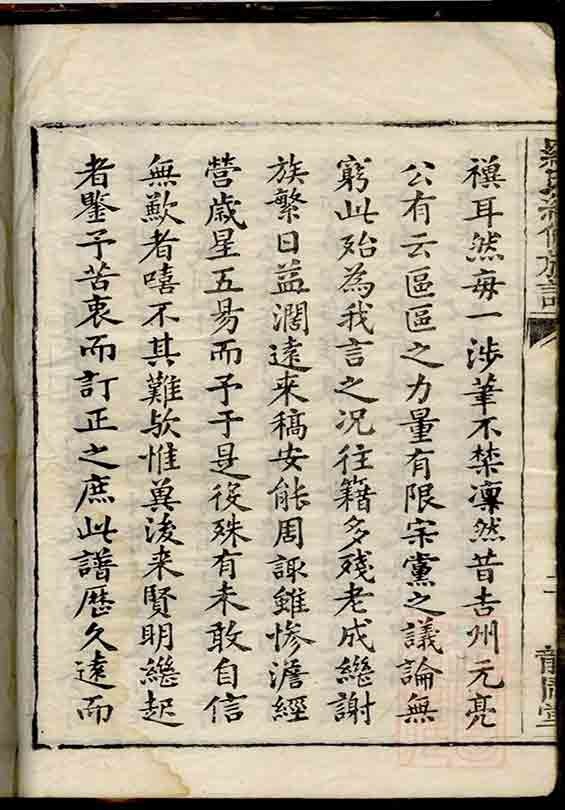 襈耳然毎一涉筆不禁凜然昔吉州元亮
公有云區區之力量有限宗黨之議論無
窮此殆為我言之况往籍多殘老成繼謝
族繁日益濶遠来稿安能周諏雖慘澹經
營歲星五易而予于是役殊有未敢自信
無歉者嘻不其難歟惟兾後来賢明繼起
者鑒予苦衷而訂正之庶此譜歴久遠而